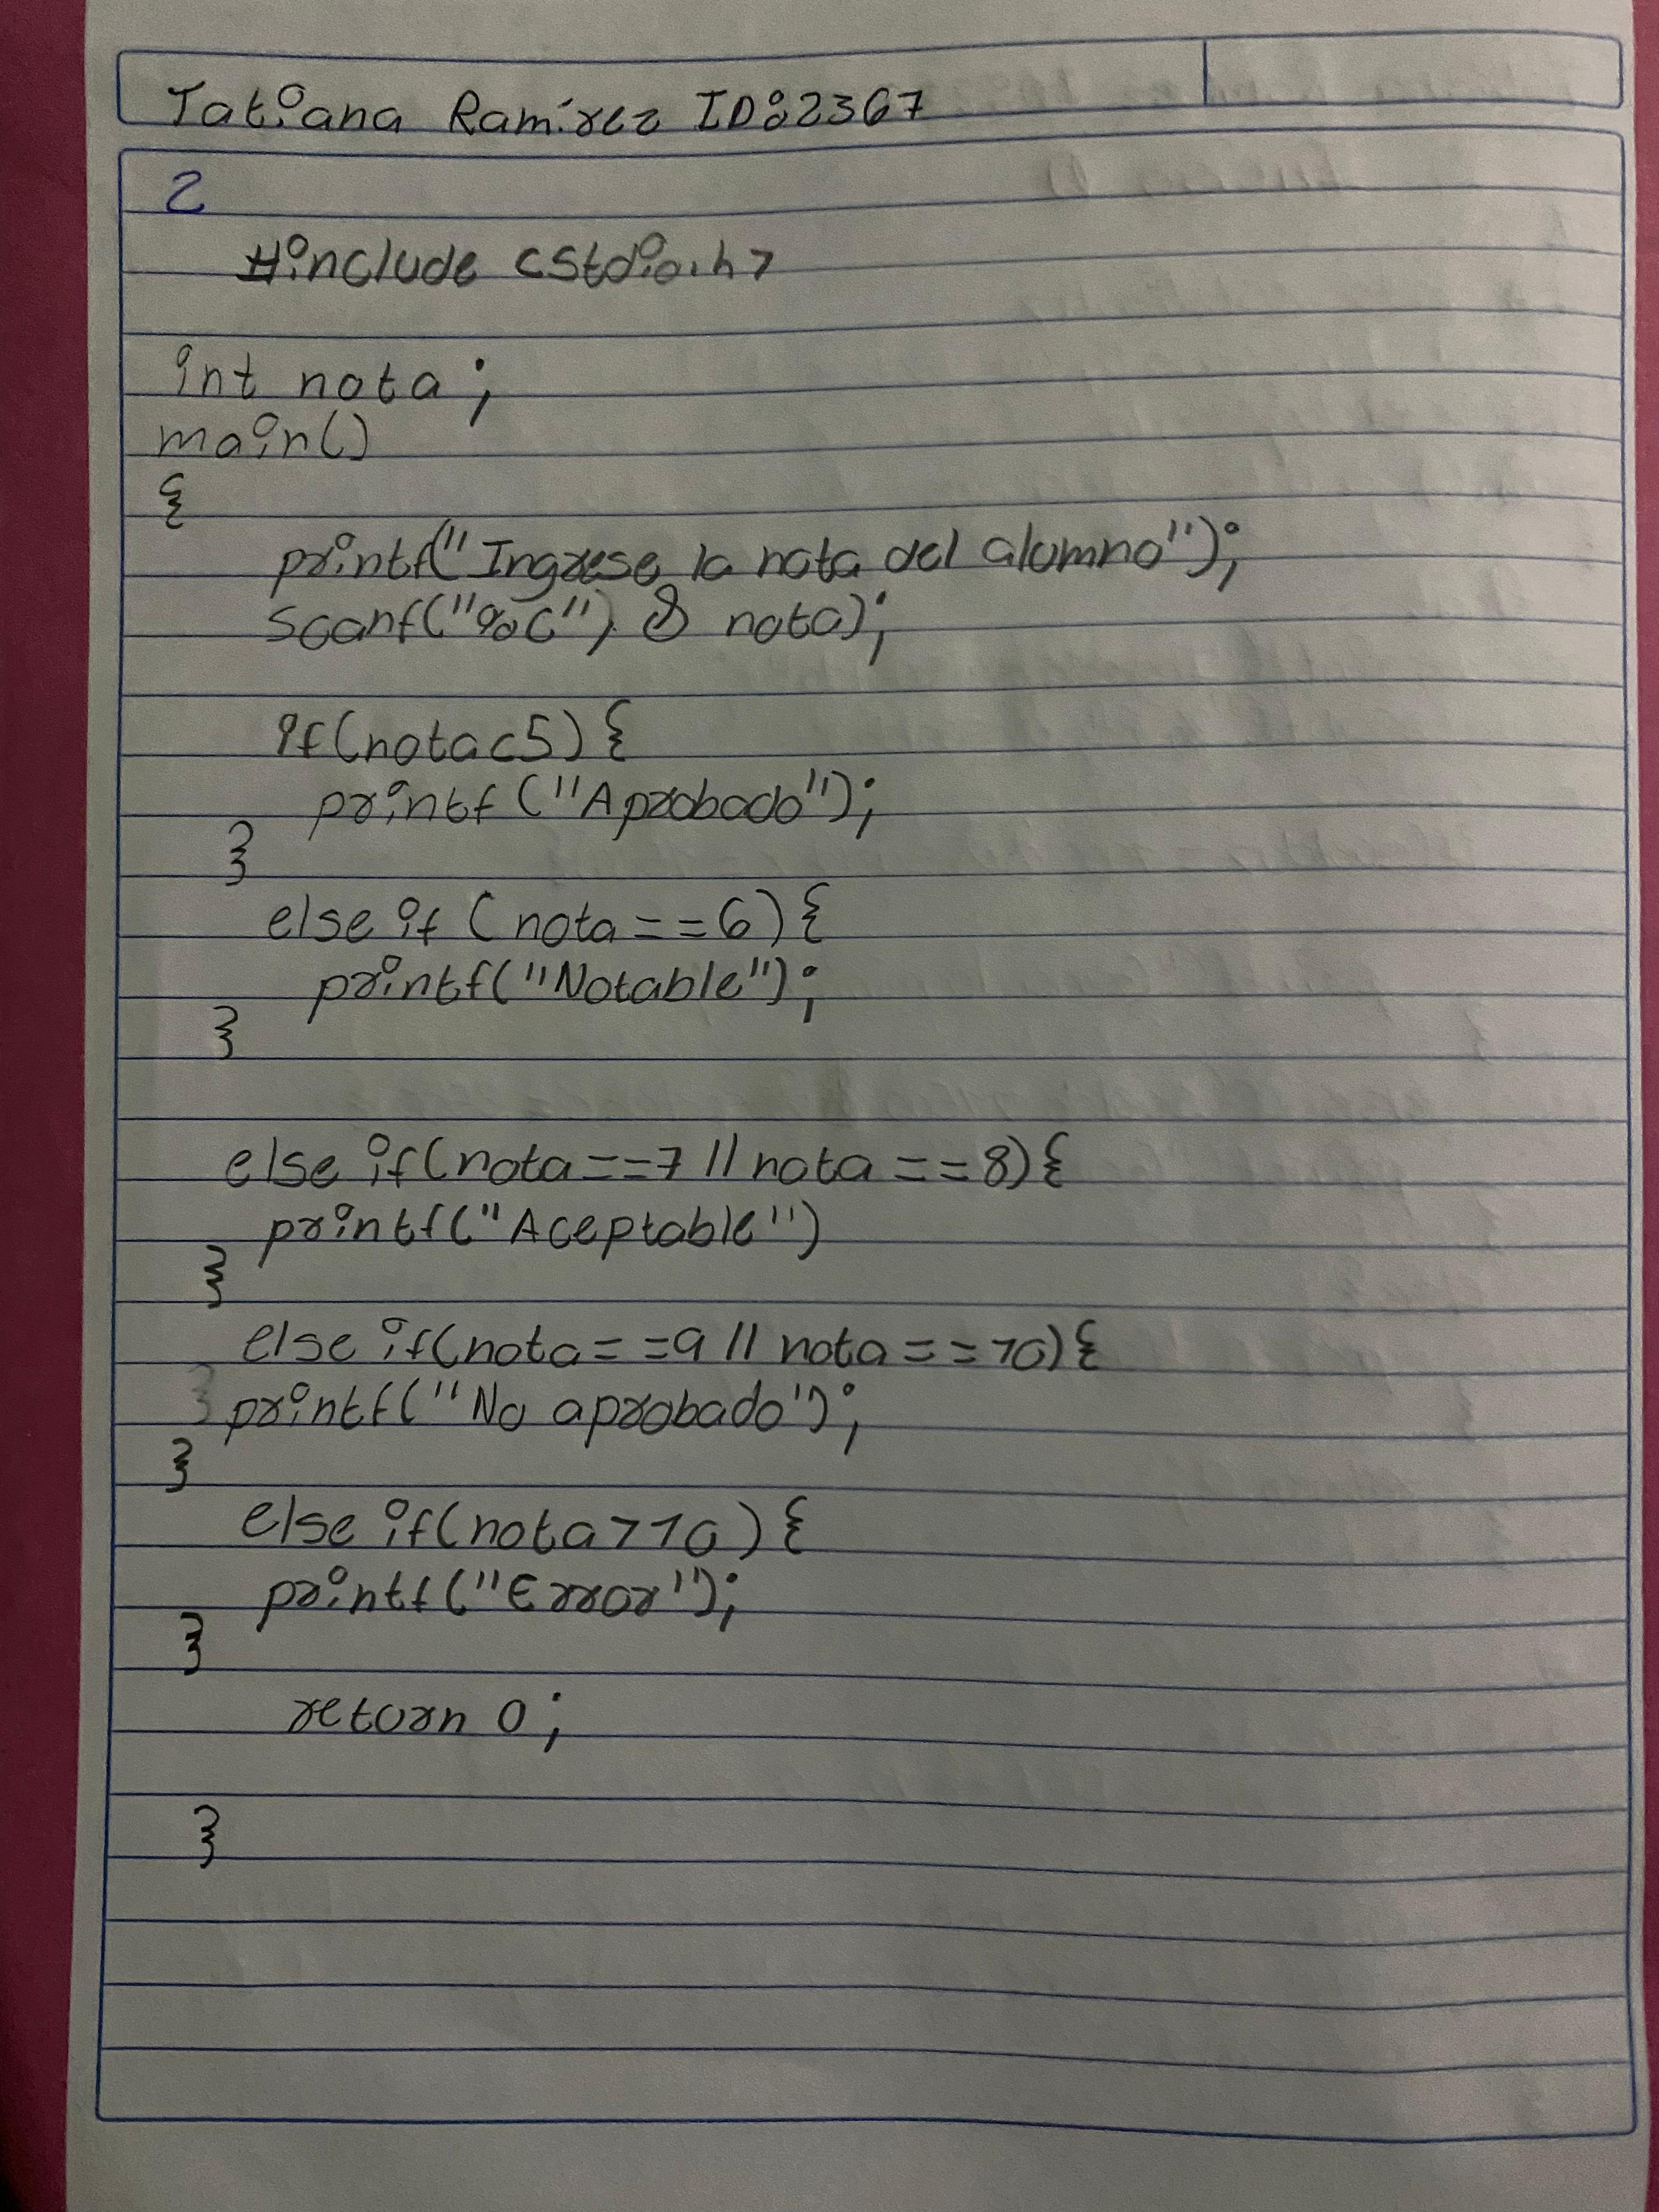 Tatiana Ramírez ID:2367
2
#include <stdio.h>
int nota;
main()
{
printf("Ingrese la nota del alumno");
scanf("%c"), & nota);
if(nota<5){
printf ("Aprobado");
}
else if (nota==6){
printf("Notable");
}
else if(nota==7 || nota ==8){
printf("Aceptable")
}
else if(nota==9 || nota ==10){
printf("No aprobado");
}
else if(nota>10){
printf("Error");
}
return 0;
}